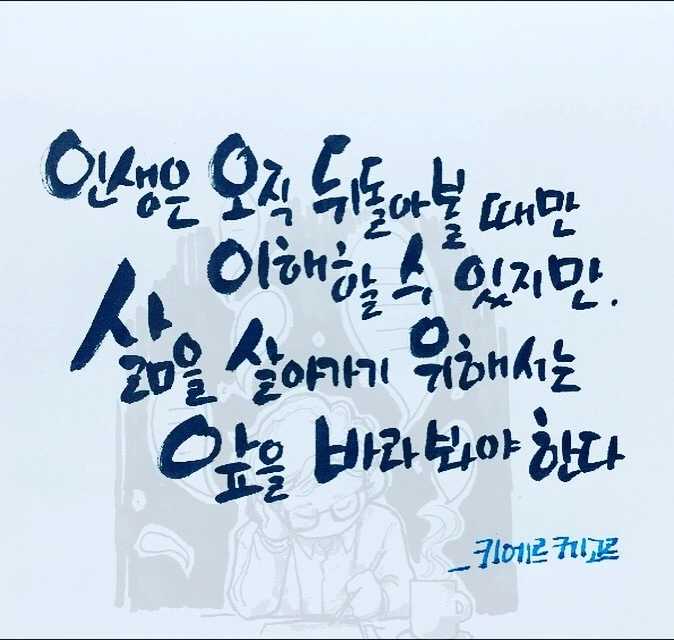 인생은 오직 뒤돌아볼 때만
이해할 수 있지만.
삶을 살아가기 위해서는
앞을 바라봐야 한다
_키에르케고르